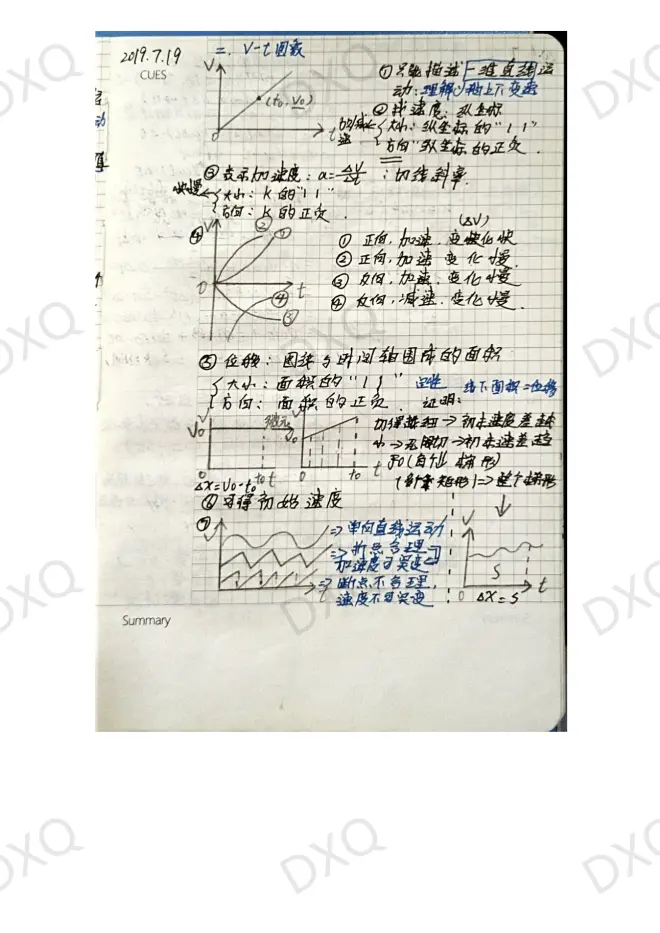 2019.7.19
CUES
二、V-t图教
V
(t₀, V₀)
0
t
①只能描述一维直线运
动:理解V轴上下变速
②找速度:纵坐标
大小:纵坐标的"| |"
方向:纵坐标的正负.
③表示加速度:a=ΔV/Δt :切线斜率.
快慢
大小:K的"| |"
方向:K的正负.
④
V
②
①
0
t
④
③
(ΔV)
①正向,加速,变化快
②正向,加速 变化慢.
③反向,加速,变化慢
④反向,减速,变化慢.
⑤位移:图线与时间轴围成的面积
大小:面积的"| |"
方向:面积的正负.
线下面积=位移
证明:
V
V₀
0
t₀ t
ΔX=V₀·t₀
V
V₀
0
t₀
初末速度差越
小→无限切→初末速差趋
于0(自化梯形)
矩形)=>整个梯形
⑥可得初始速度
⑦
=>单向直线运动
=>折点合理
加速度可突变
=>断点不合理,
速度不可突变
t
V
S
t
0
ΔX=S
Summary
DXQ
DXQ
DXQ
DXQ
DXQ
DXQ
DXQ
DXQ
DXQ
DXQ
DXQ
DXQ